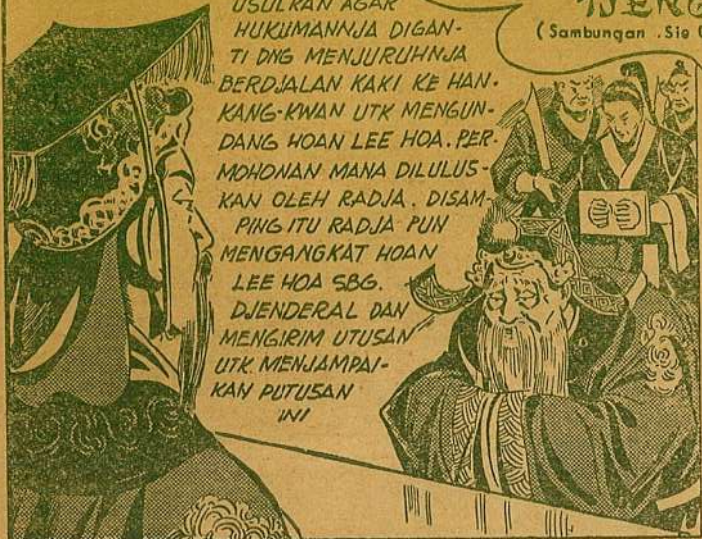 USULKAN AGAR
HUKUMANNJA DIGAN-
TI DNG MENJURUHNJA
BERDJALAN KAKI KE HAN-
KANG-KWAN UTK MENGUN-
DANG HOAN LEE HOA. PER-
MOHONAN MANA DILULUS-
KAN OLEH RADJA. DISAM-
PING ITU RADJA PUN
MENGANGKAT HOAN
LEE HOA SBG.
DJENDERAL DAN
MENGIRIM UTUSAN
UTK. MENJAMPAI-
KAN PUTUSAN
INI
TJENG
(Sambungan .Sie